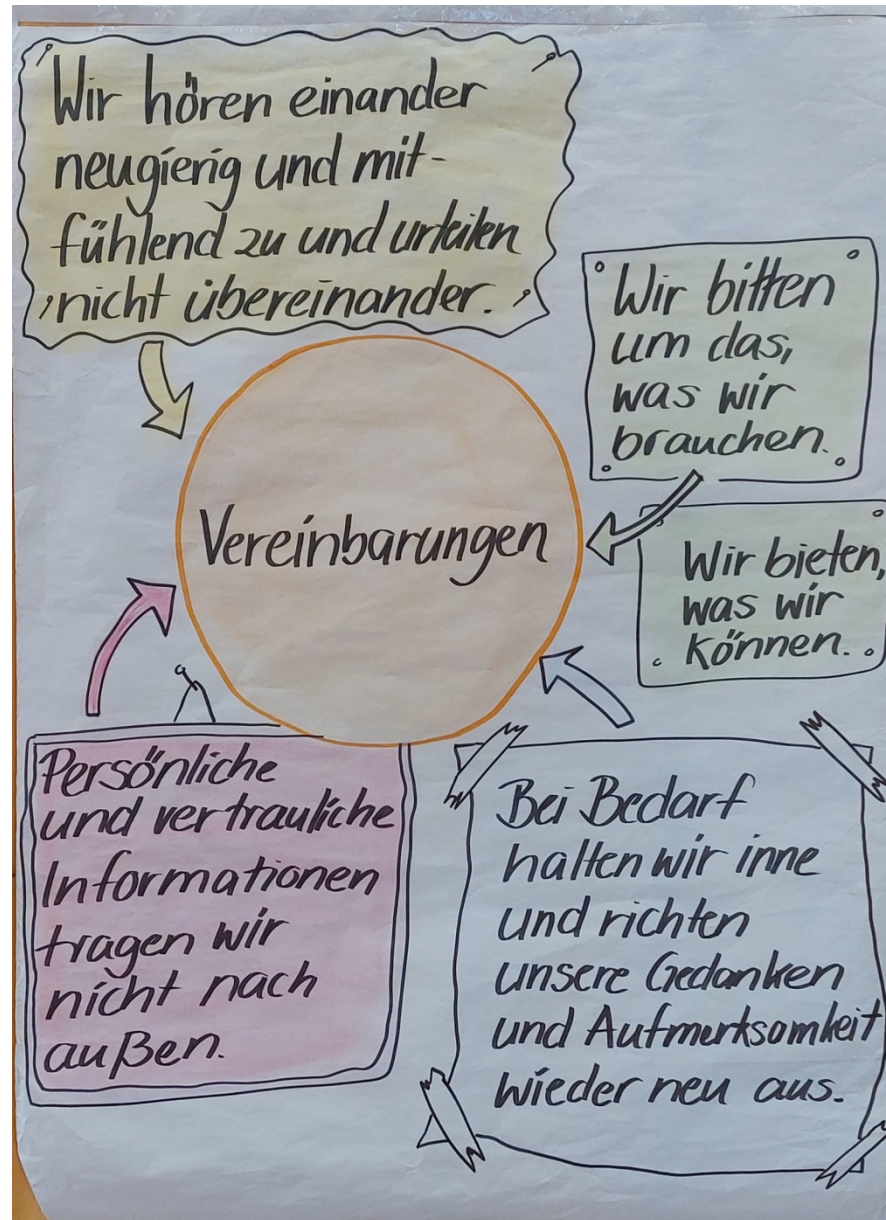 Wir hören einander
neugierig und mit-
fühlend zu und urteilen
nicht übereinander.
Wir bitten
um das,
was wir
brauchen.
Vereinbarungen
Wir bieten,
was wir
können.
Persönliche
und vertrauliche
Informationen
tragen wir
nicht nach
außen.
Bei Bedarf
halten wir inne
und richten
unsere Gedanken
und Aufmerksamkeit
wieder neu aus.